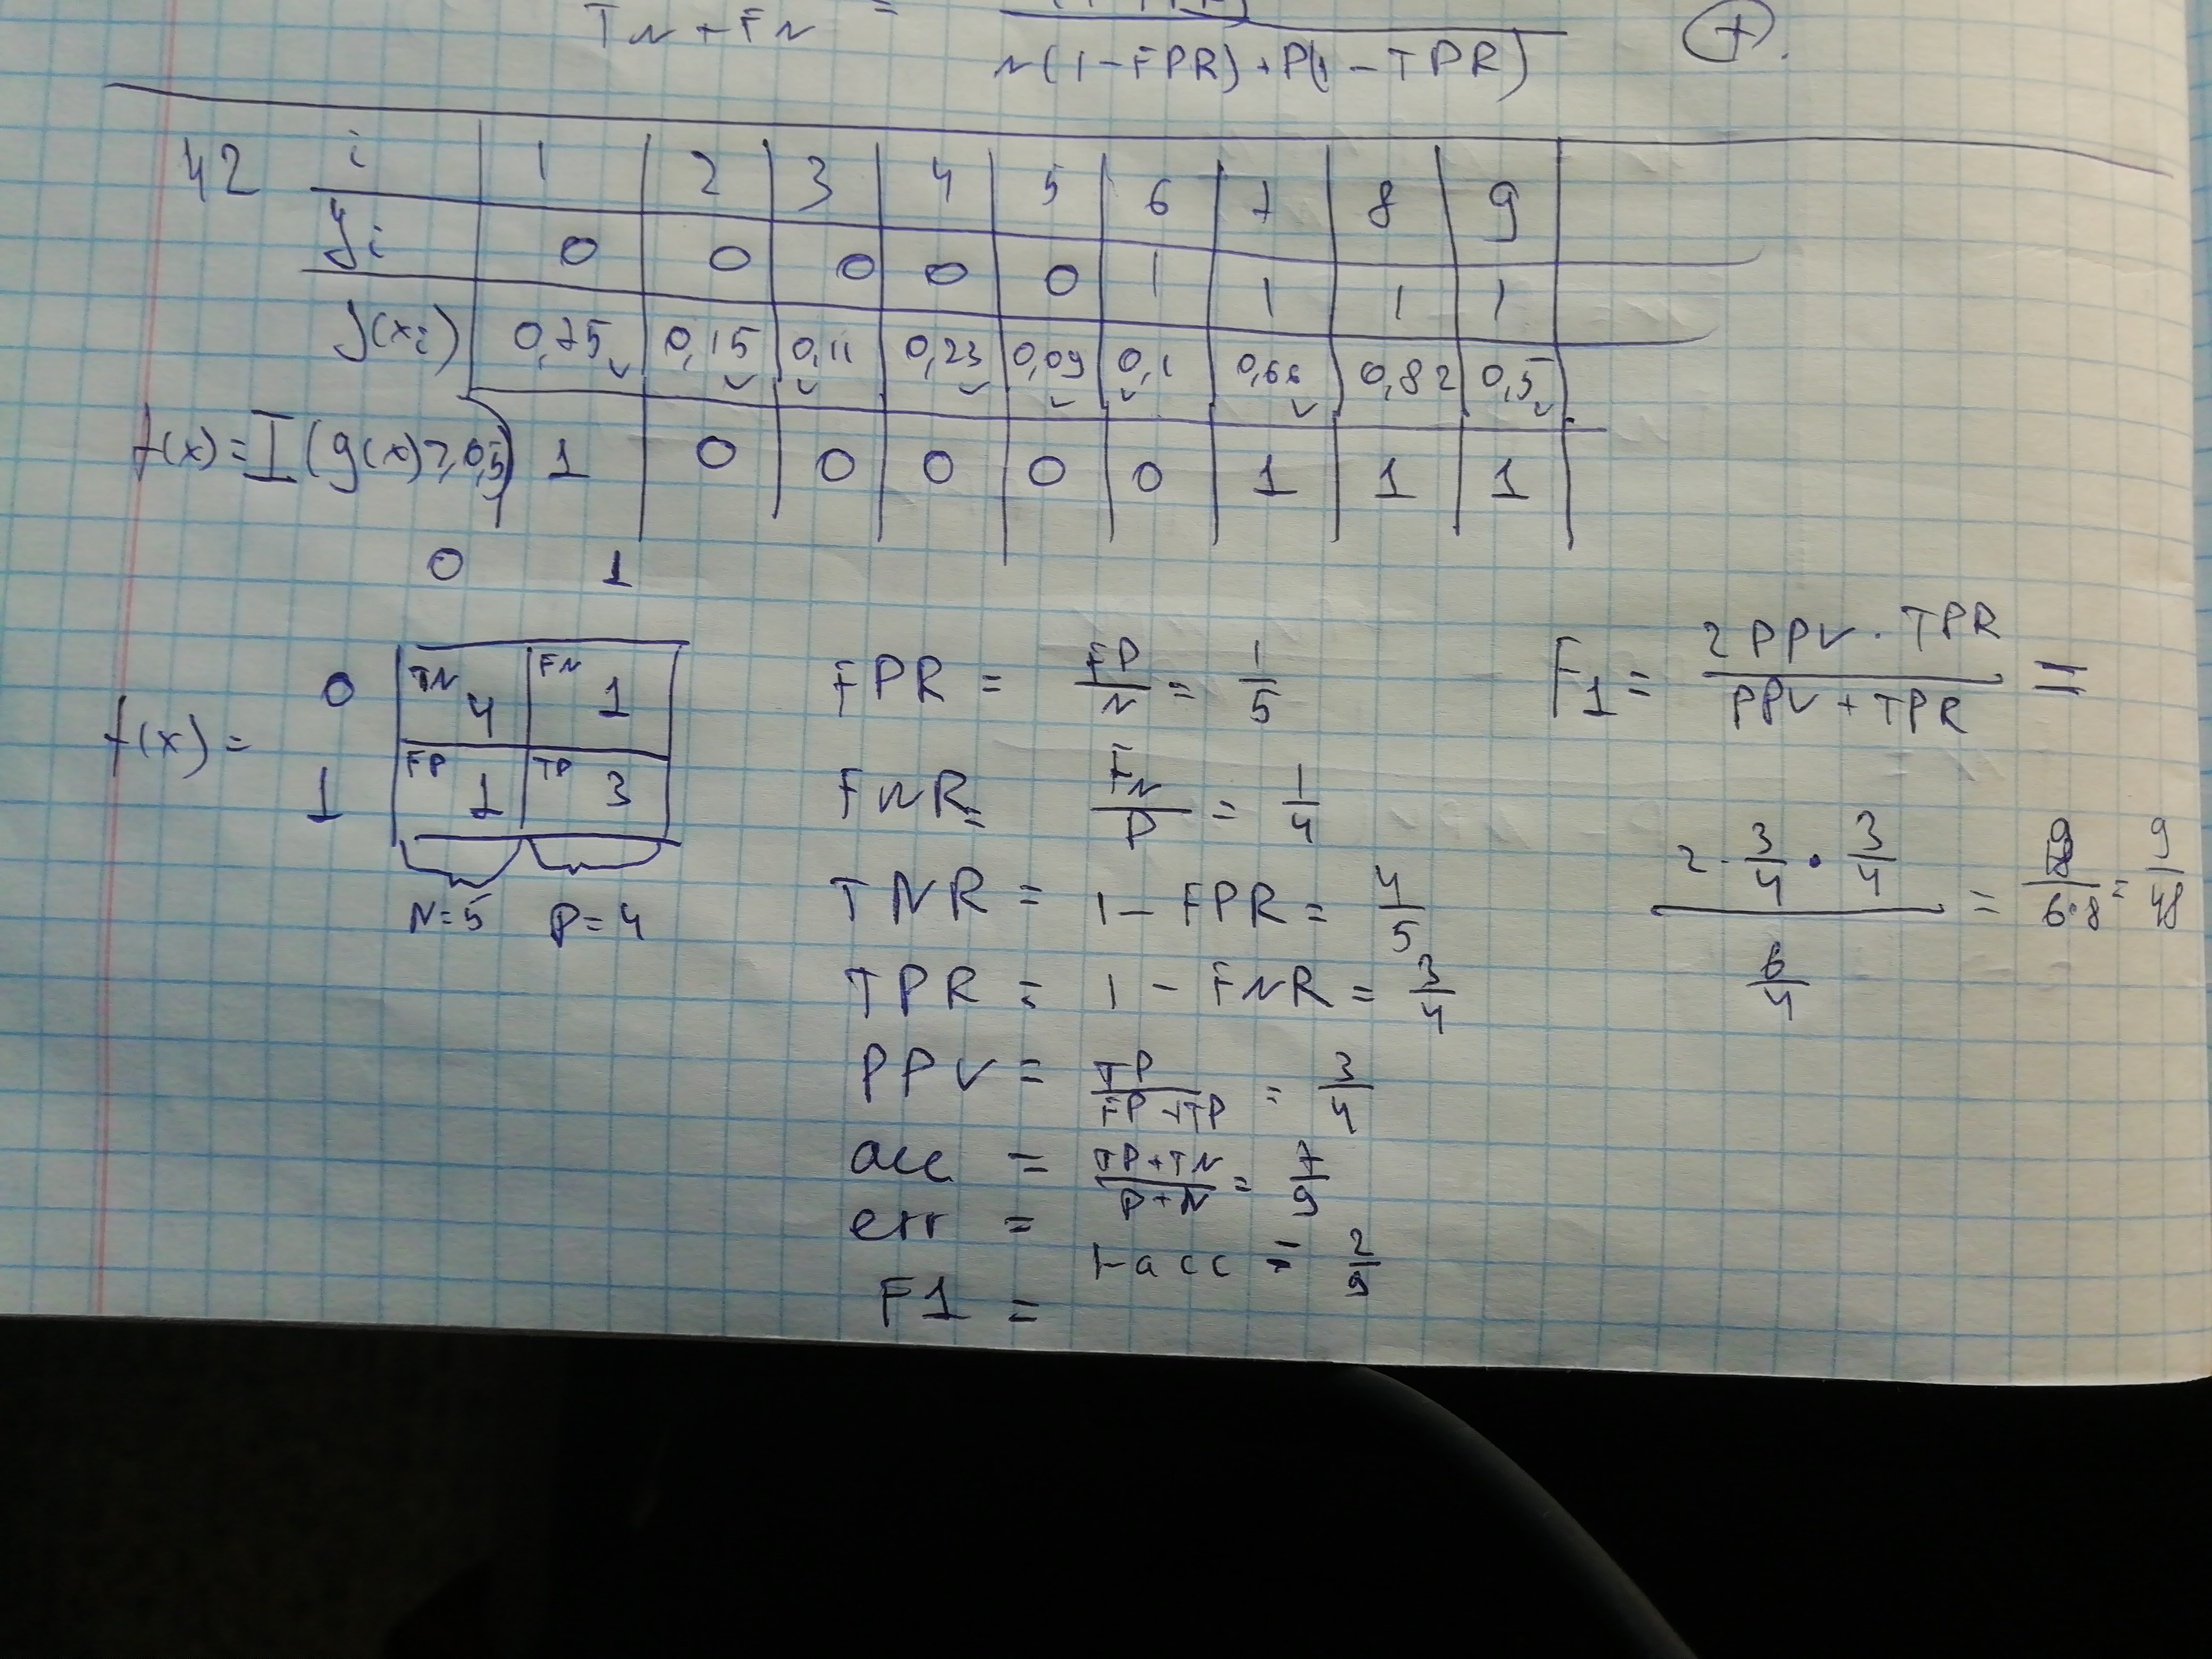 TN + FN =
N(1-FPR) + P(1-TPR) +.
42 i 1 2 3 4 5 6 7 8 9
yi 0 0 0 0 0 1 1 1 1
g(xi) 0,75 0,15 0,11 0,23 0,09 0,1 0,66 0,82 0,5
f(x) = I(g(x)≥0,5) 1 0 0 0 0 0 1 1 1
0 1
f(x) =
0 TN 4 FN 1
1 FP 1 TP 3
N=5 P=4
FPR = FP/N = 1/5
FNR = FN/P = 1/4
TNR = 1-FPR = 4/5
TPR = 1-FNR = 3/4
PPV = TP/(FP+TP) = 3/4
acc = (TP+TN)/(P+N) = 7/9
err = 1-acc = 2/9
F1 =
F1 = (2PPV·TPR)/(PPV+TPR) =
(2·3/4·3/4)/(6/4) = 9/(6·8) = 9/48